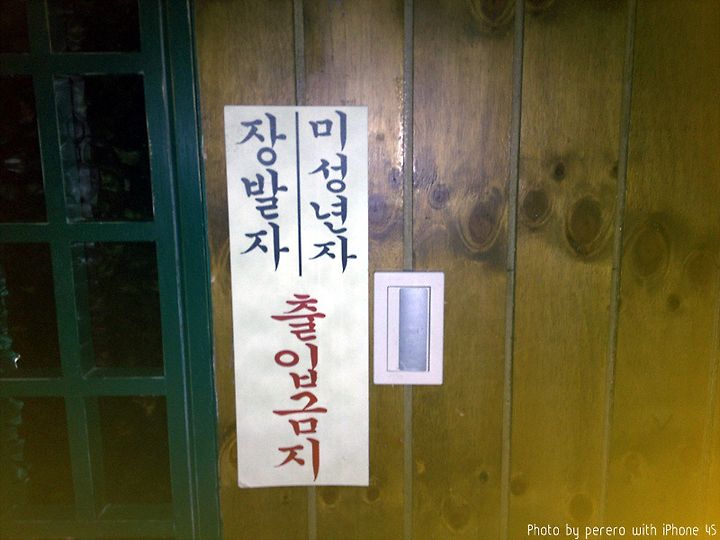 미성년자
장발자
출입금지
Photo by perero with iPhone 4S